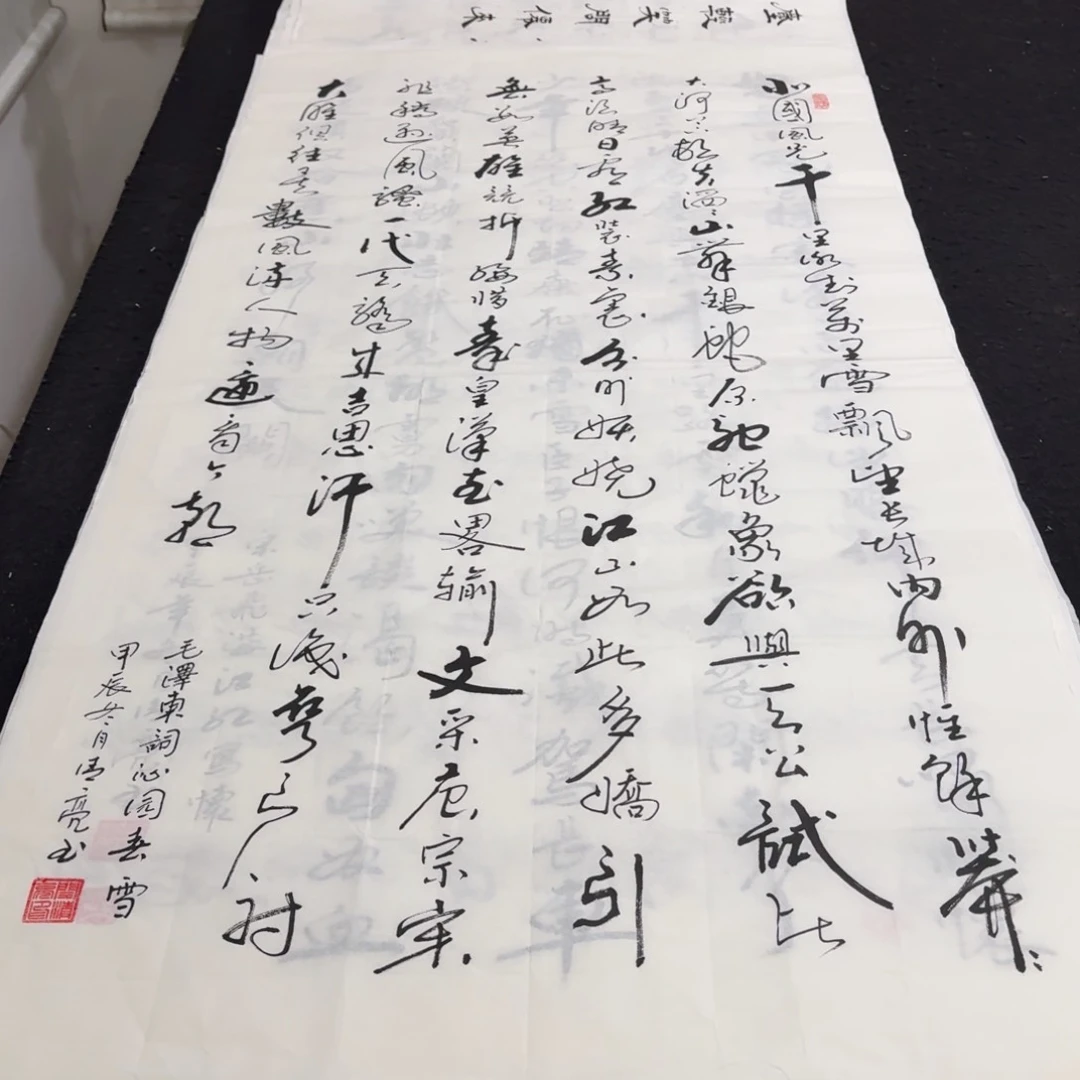 北國風光千里冰封萬里雪飄望長城內外惟餘莽々
大河上下頓失滔々山舞銀蛇原馳蠟象欲與天公試比
高須晴日看紅裝素裹分外妖嬈江山如此多嬌引
無數英雄競折腰惜秦皇漢武畧输文采唐宗宋
祖稍遜風騷一代天驕成吉思汗只識彎弓射
大雕俱往矣數風流人物還看今朝
毛澤東詞沁园春雪
甲辰月清亮书